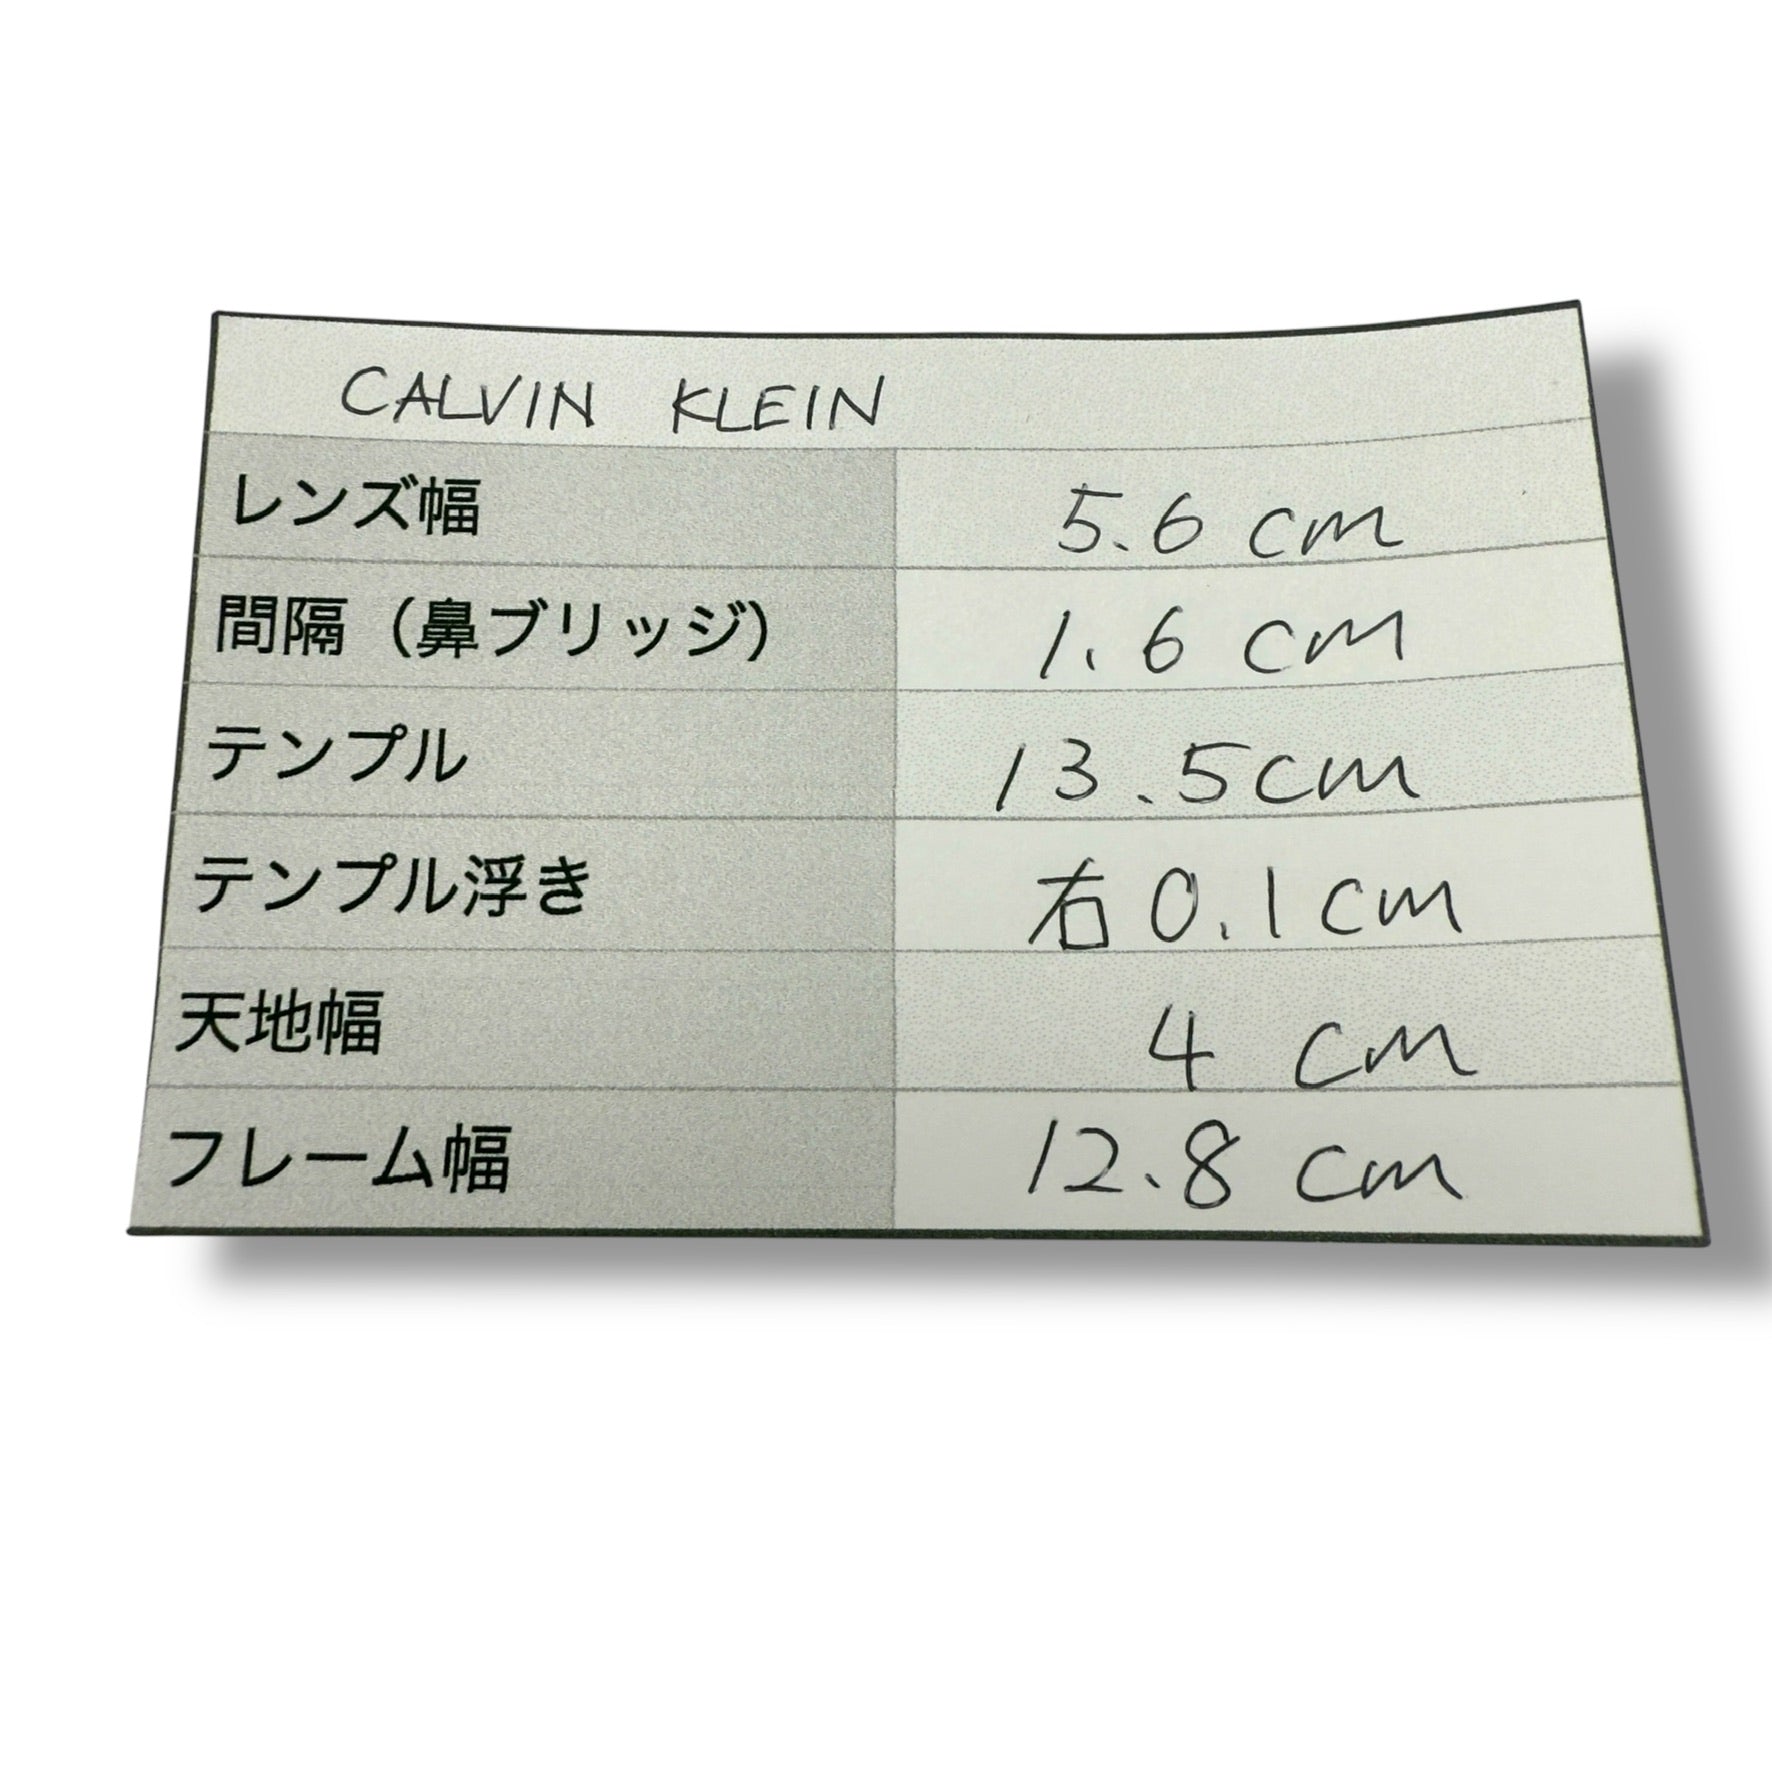 CALVIN KLEIN
レンズ幅 5.6 cm
間隔（鼻ブリッジ） 1.6 cm
テンプル 13.5cm
テンプル浮き 右 0.1cm
天地幅 4 cm
フレーム幅 12.8 cm